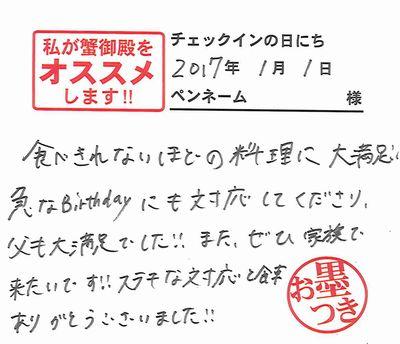 私が蟹御殿を
オススメ
します!!
チェックインの日にち
2017年 1月 1日
ペンネーム 様
食べきれないほどの料理に 大満足!
急なBirthdayにも対応してくださり、
父も大満足でした!! また、ぜひ 家族で
来たいです!! ステキな対応と食事
ありがとうございました!!
お墨つき